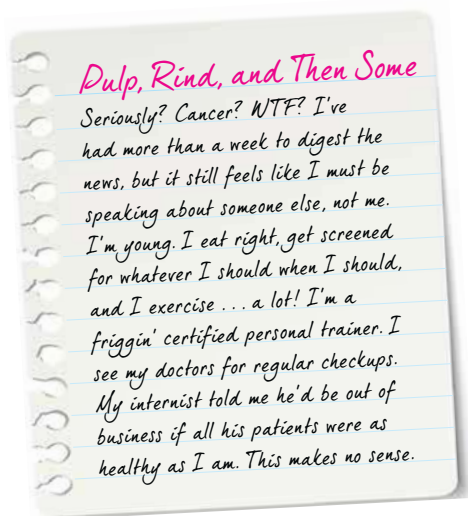 Pulp, Rind, and Then Some
Seriously? Cancer? WTF? I've
had more than a week to digest the
news, but it still feels like I must be
speaking about someone else, not me.
I'm young. I eat right, get screened
for whatever I should when I should,
and I exercise . . . a lot! I'm a
friggin' certified personal trainer. I
see my doctors for regular checkups.
My internist told me he'd be out of
business if all his patients were as
healthy as I am. This makes no sense.